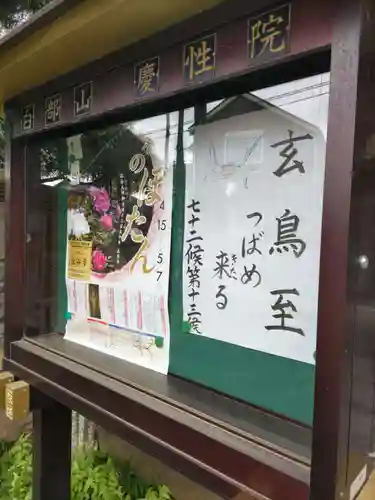 台部山慶性院
玄鳥至
つばめ
来る
きた
七十二候第十三
のぼたん
4
15
5
7